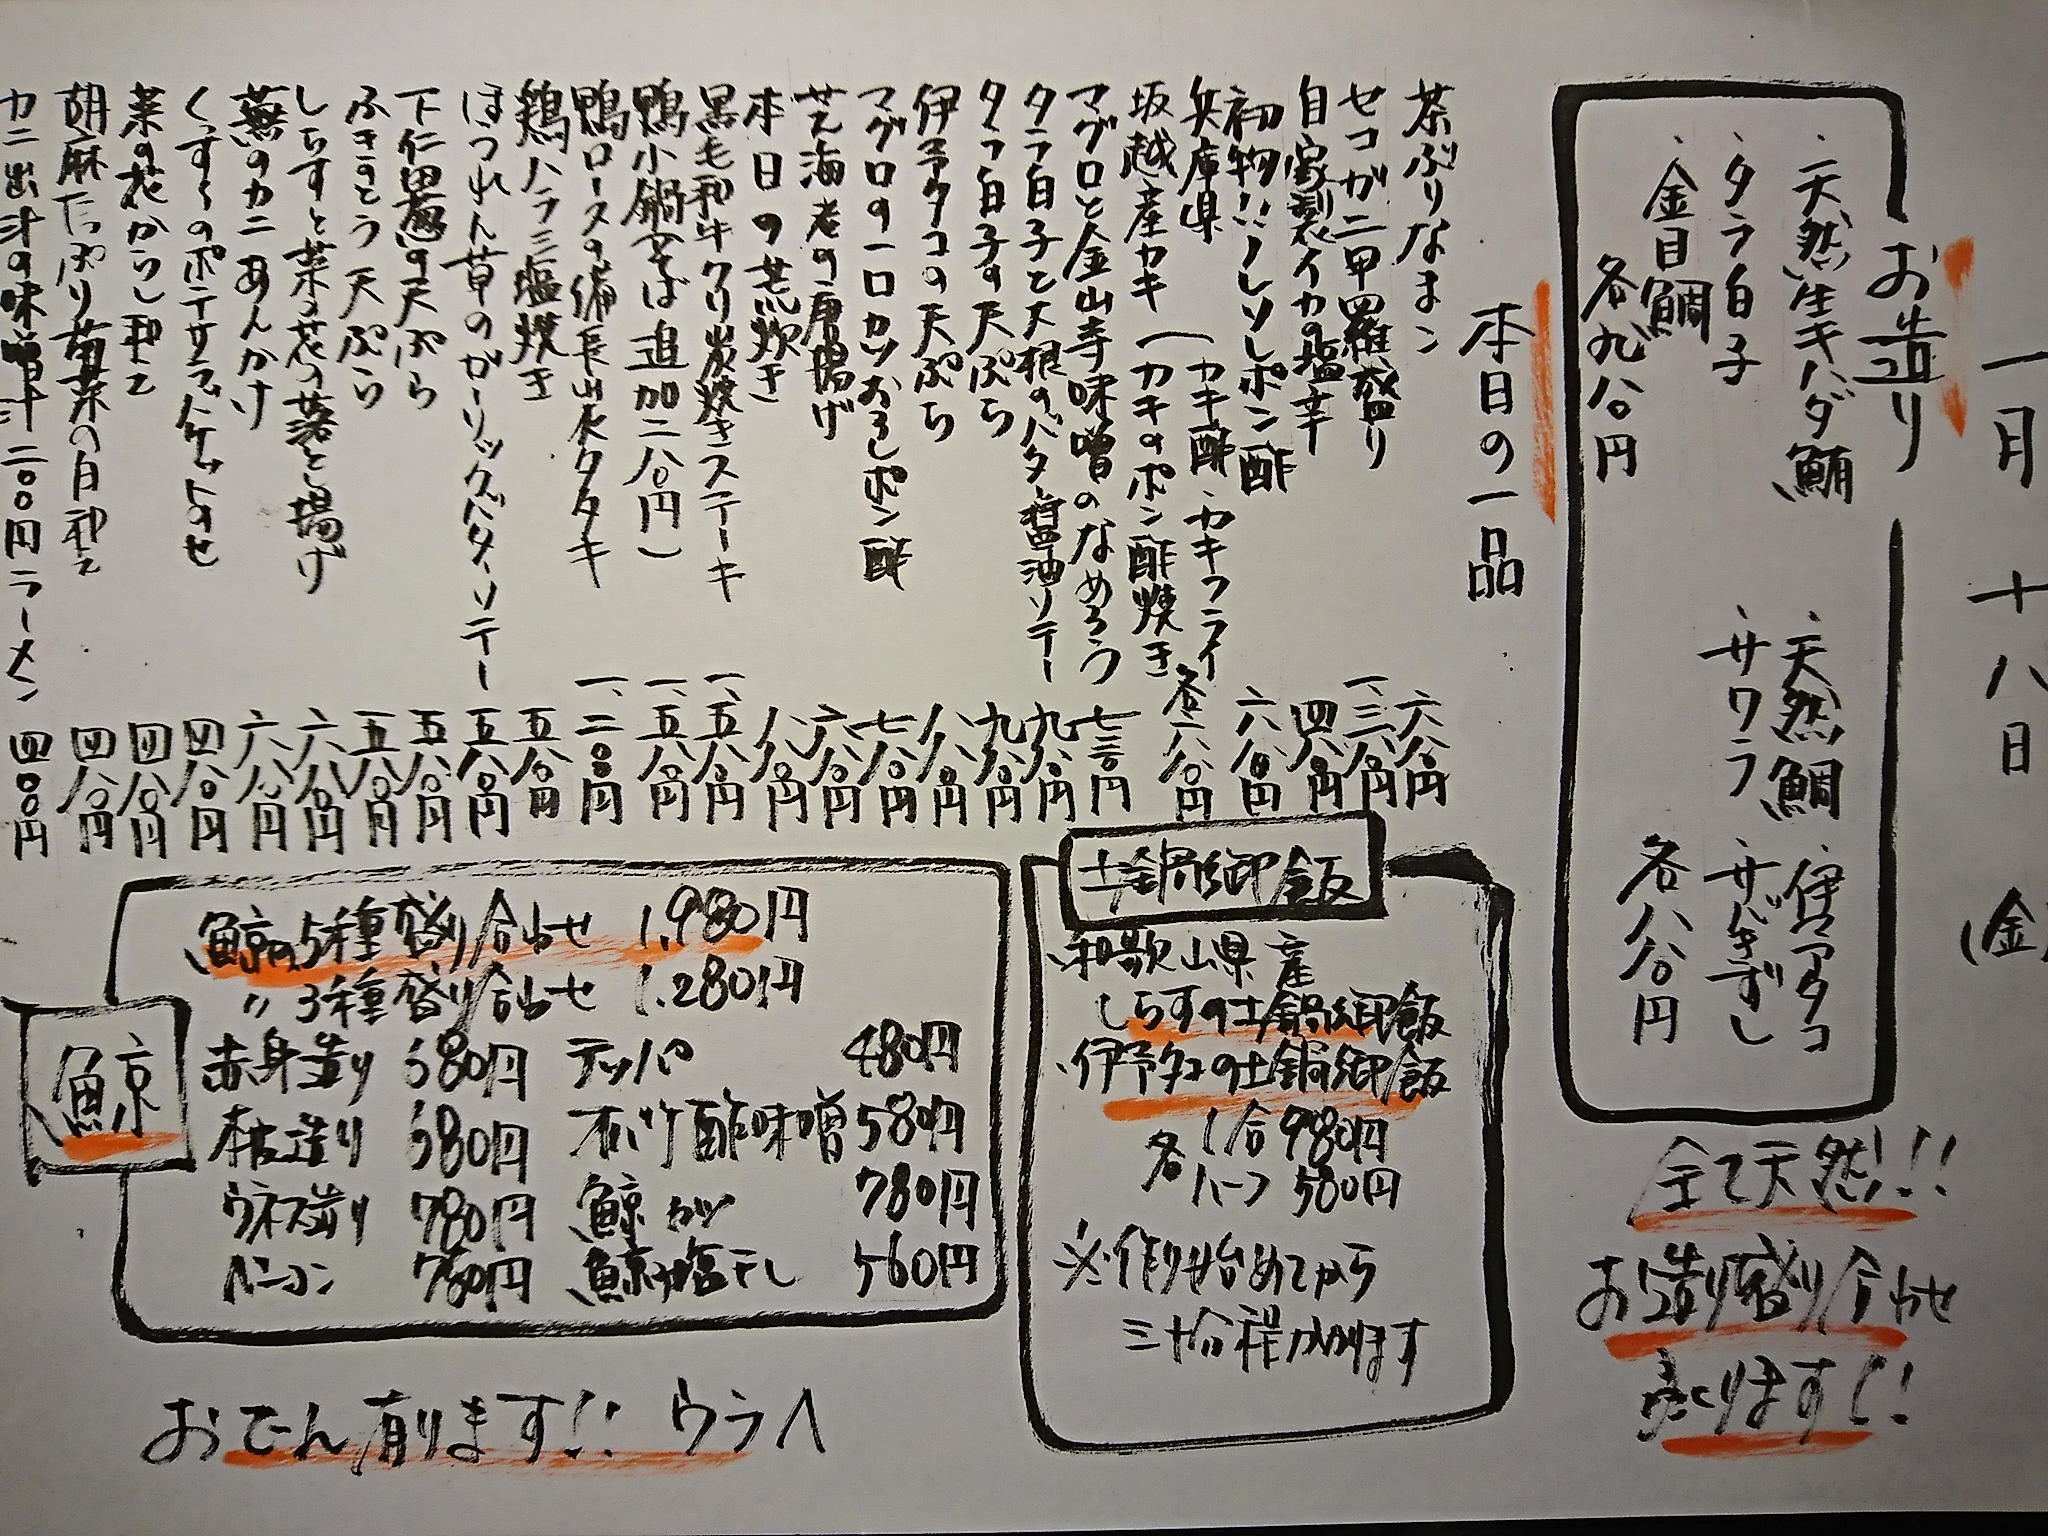 一月十八日（金）
お造り
・天然生キハダ鮪
・タラ白子
・金目鯛
各九八〇円
・天然鯛
・伊予タコ
・サワラ
・サビキずし
各八八〇円
全て天然!!
お造り盛り合わせ
売ります!!
本日の一品
茶ぶりなまこ 六八〇円
セコガニ甲羅盛り 一、三八〇円
自家製イカの塩辛 四八〇円
初物!!ノレソレポン酢 六八〇円
兵庫県
坂越産カキ
（カキ酢・カキフライ
（カキのポン酢焼き 各六八〇円
マグロと金山寺味噌のなめろう 七三〇円
タラ白子と大根のバター醤油ソテー 九八〇円
タラ白子の天ぷら 九八〇円
伊予タコの天ぷら 八八〇円
マグロの一口カツおろしポン酢 七八〇円
芝海老の唐揚げ 六八〇円
本日の荒炊き 八八〇円
黒毛和牛クリ炭焼きステーキ 一、五八〇円
鴨小鍋（そば追加二八〇円） 一、五八〇円
鴨ロースの備長炭火タタキ 一、二〇〇円
鶏ハラミ塩焼き 五八〇円
ほうれん草のガーリックバターソテー 五八〇円
下仁田葱の天ぷら 五八〇円
ふきのとう天ぷら 五八〇円
しらすと菜の花の落とし揚げ 六八〇円
蕪のカニあんかけ 六八〇円
くんすくのポテサラブルケットのせ 四八〇円
菜の花からし和え 四八〇円
胡麻たっぷり菊菜の白和え 四八〇円
カニ出汁の味噌汁二〇〇円ラーメン 四〇〇円
土鍋御飯
和歌山県産
しらすの土鍋御飯
・伊予タコの土鍋御飯
各1合980円
各ハーフ580円
※作り始めてから
三十分程かかります
鯨
鯨の5種盛り合わせ 1,980円
〃3種盛り合わせ 1,280円
赤身造り 580円 テッパ 480円
本皮造り 580円 オバケ酢味噌 580円
ウネス造り 780円 鯨カツ 780円
ベーコン 780円 鯨の塩干し 560円
おでん有ります!! ウラへ